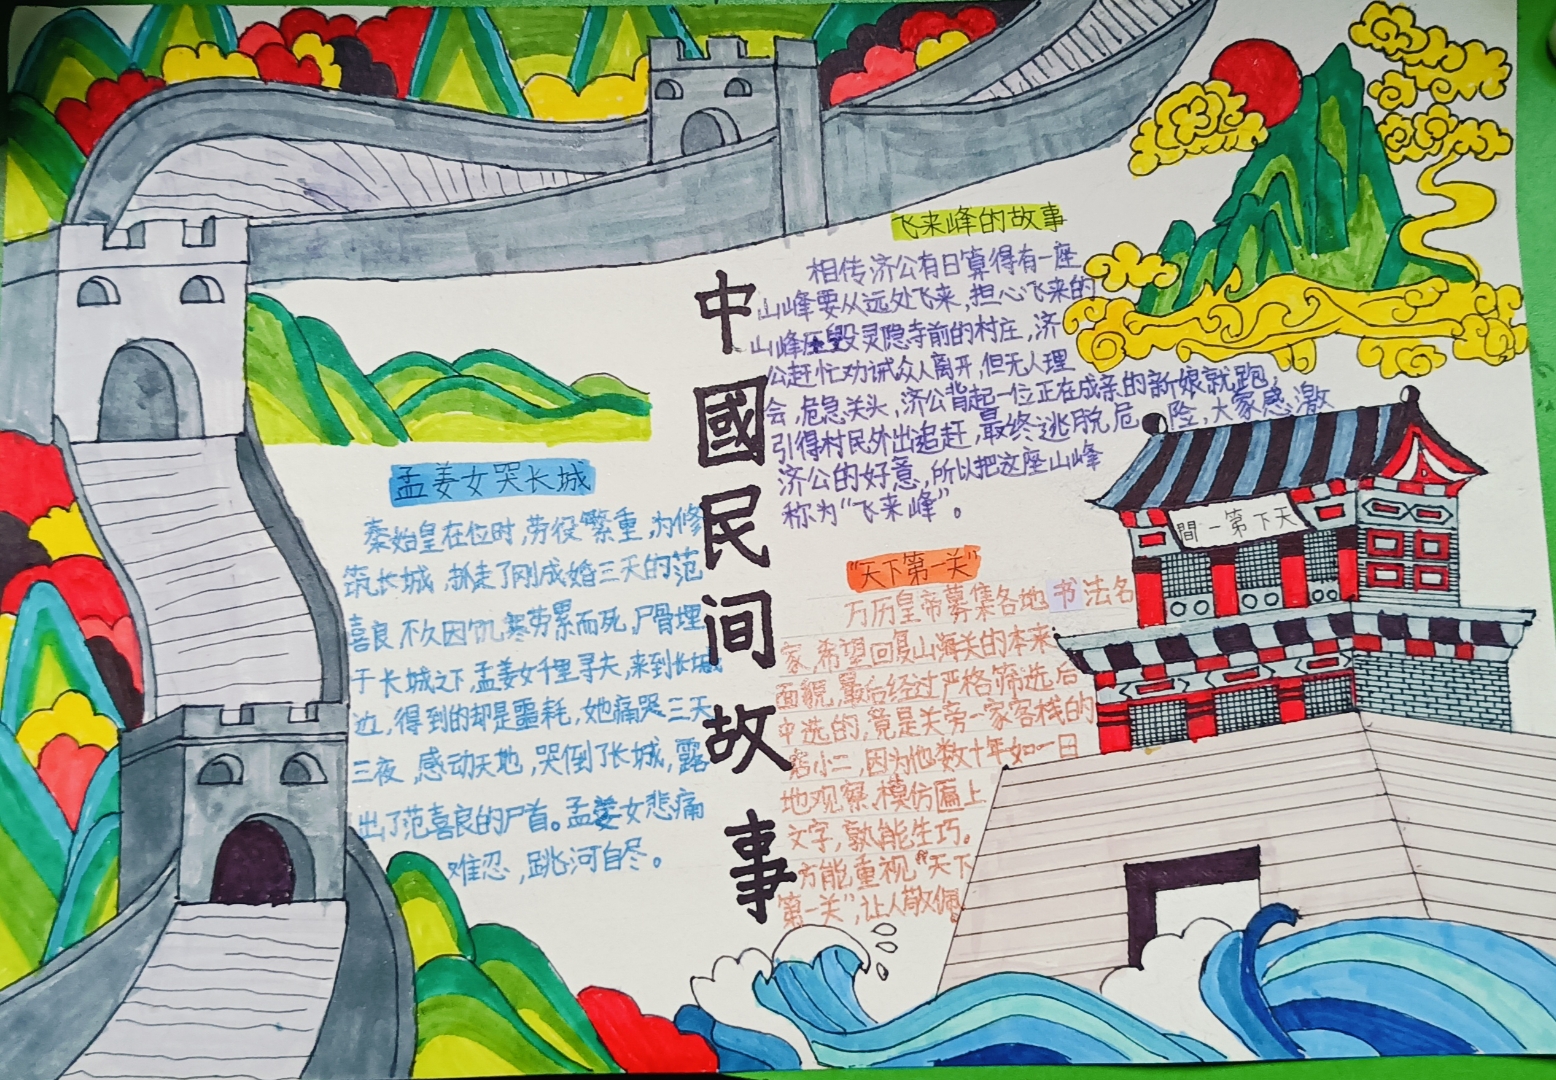 中國民间故事
孟姜女哭长城
秦始皇在位时,劳役繁重,为修
筑长城,抓走了刚成婚三天的范
喜良,不久因饥寒劳累而死,尸骨埋
于长城之下,孟姜女千里寻夫,来到长城
边,得到的却是噩耗,她痛哭三天
三夜,感动天地,哭倒了长城,露
出了范喜良的尸首。孟姜女悲痛
难忍,跳河自尽。
飞来峰的故事
相传济公有日算得有一座
山峰要从远处飞来,担心飞来的
山峰压毁灵隐寺前的村庄,济
公赶忙劝诫众人离开,但无人理
会,危急关头,济公背起一位正在成亲的新娘就跑,
引得村民外出追赶,最终逃脱危险,大家感激
济公的好意,所以把这座山峰
称为“飞来峰”。
“天下第一关”
万历皇帝募集各地书法名
家,希望回复山海关的本来
面貌,最后经过严格筛选后
中选的,竟是关旁一家客栈的
店小二,因为他数十年如一日
地观察,模仿匾上
文字,孰能生巧。
方能重视“天下
第一关”,让人敬佩。
間一第下天